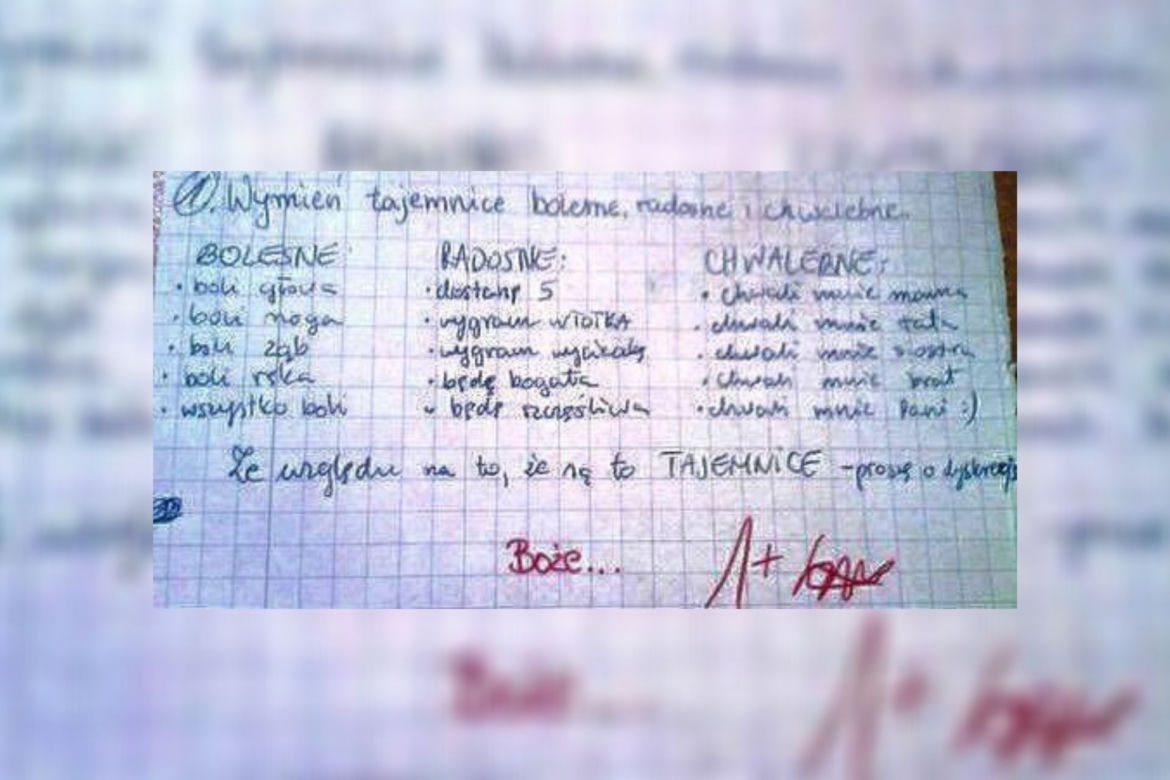 1. Wymień tajemnice bolesne, radosne i chwalebne.
BOLESNE: RADOSNE: CHWALEBNE:
• boli głowa • dostanę 5 • chwali mnie mama
• boli noga • wygram w TOTKA • chwali mnie tata
• boli ząb • wygram wycieczkę • chwali mnie siostra
• boli ręka • będę bogata • chwali mnie brat
• wszystko boli • będę szczęśliwa • chwali mnie Pani :)
Ze względu na to, że są to TAJEMNICE - proszę o dyskrecję
Boże... 1+